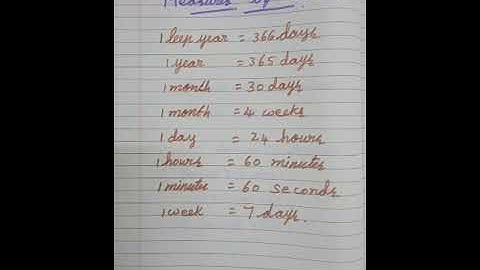 Measures of
1 leep year = 366 days
1 year = 365 days
1 month = 30 days
1 month = 4 weeks
1 day = 24 hours
1 hours = 60 minutes
1 minutes = 60 seconds
1 week = 7 days.